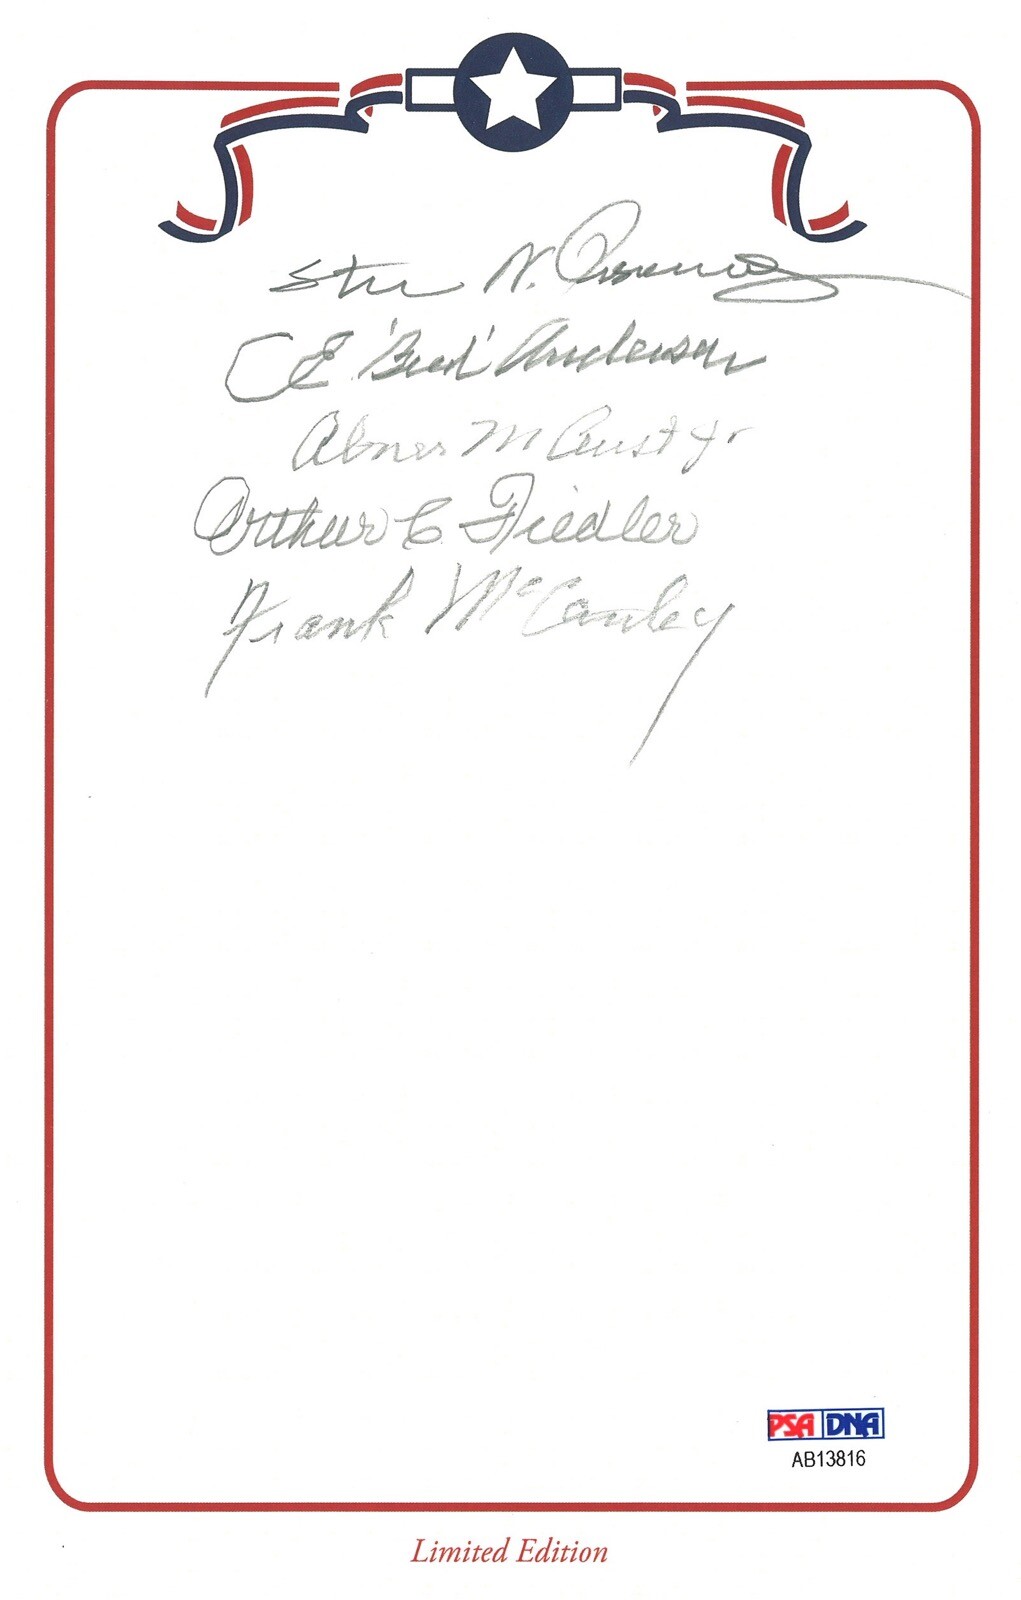 Steve N. Pisanos
C E "Bud" Anderson
Abner M Aust Jr
Arthur C. Fiedler
Frank McCauley
PSA DNA
AB13816
Limited Edition